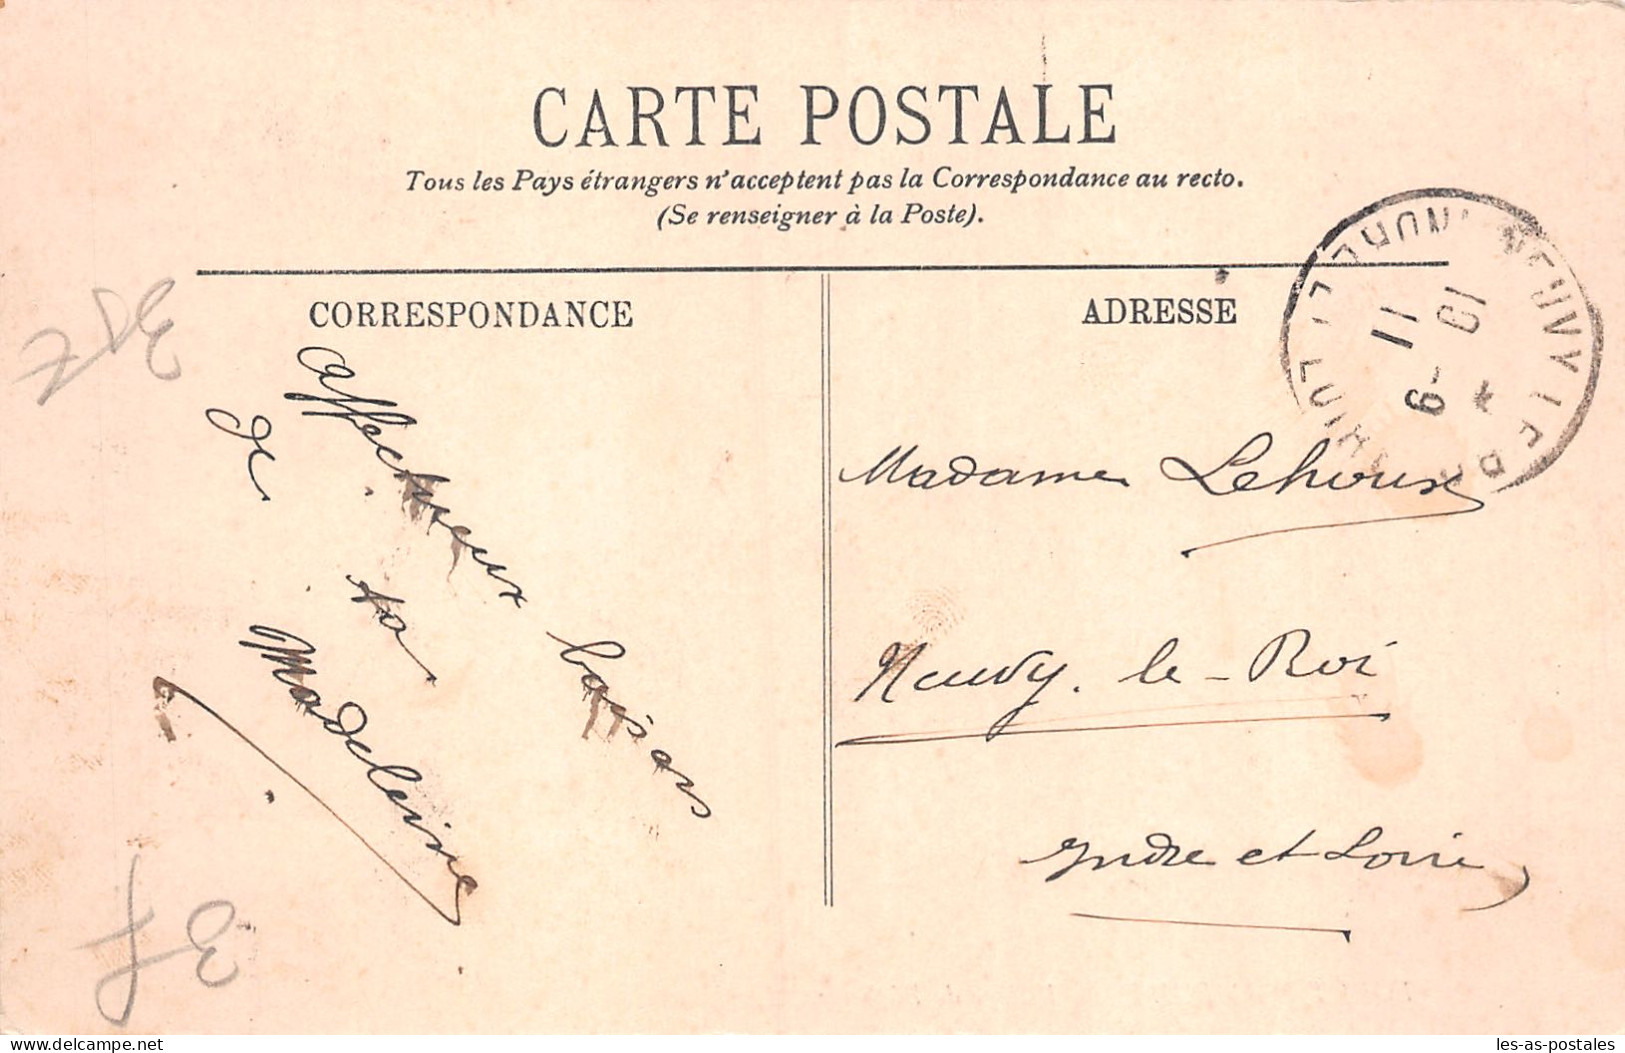 CARTE POSTALE
Tous les Pays étrangers n'acceptent pas la Correspondance au recto.
(Se renseigner à la Poste).
CORRESPONDANCE
ADRESSE
affectueux baisers
de ta
Madeleine
Madame Lehoux
Neuvy-le-Roi
Indre et Loire
11
19
9
les-as-postales